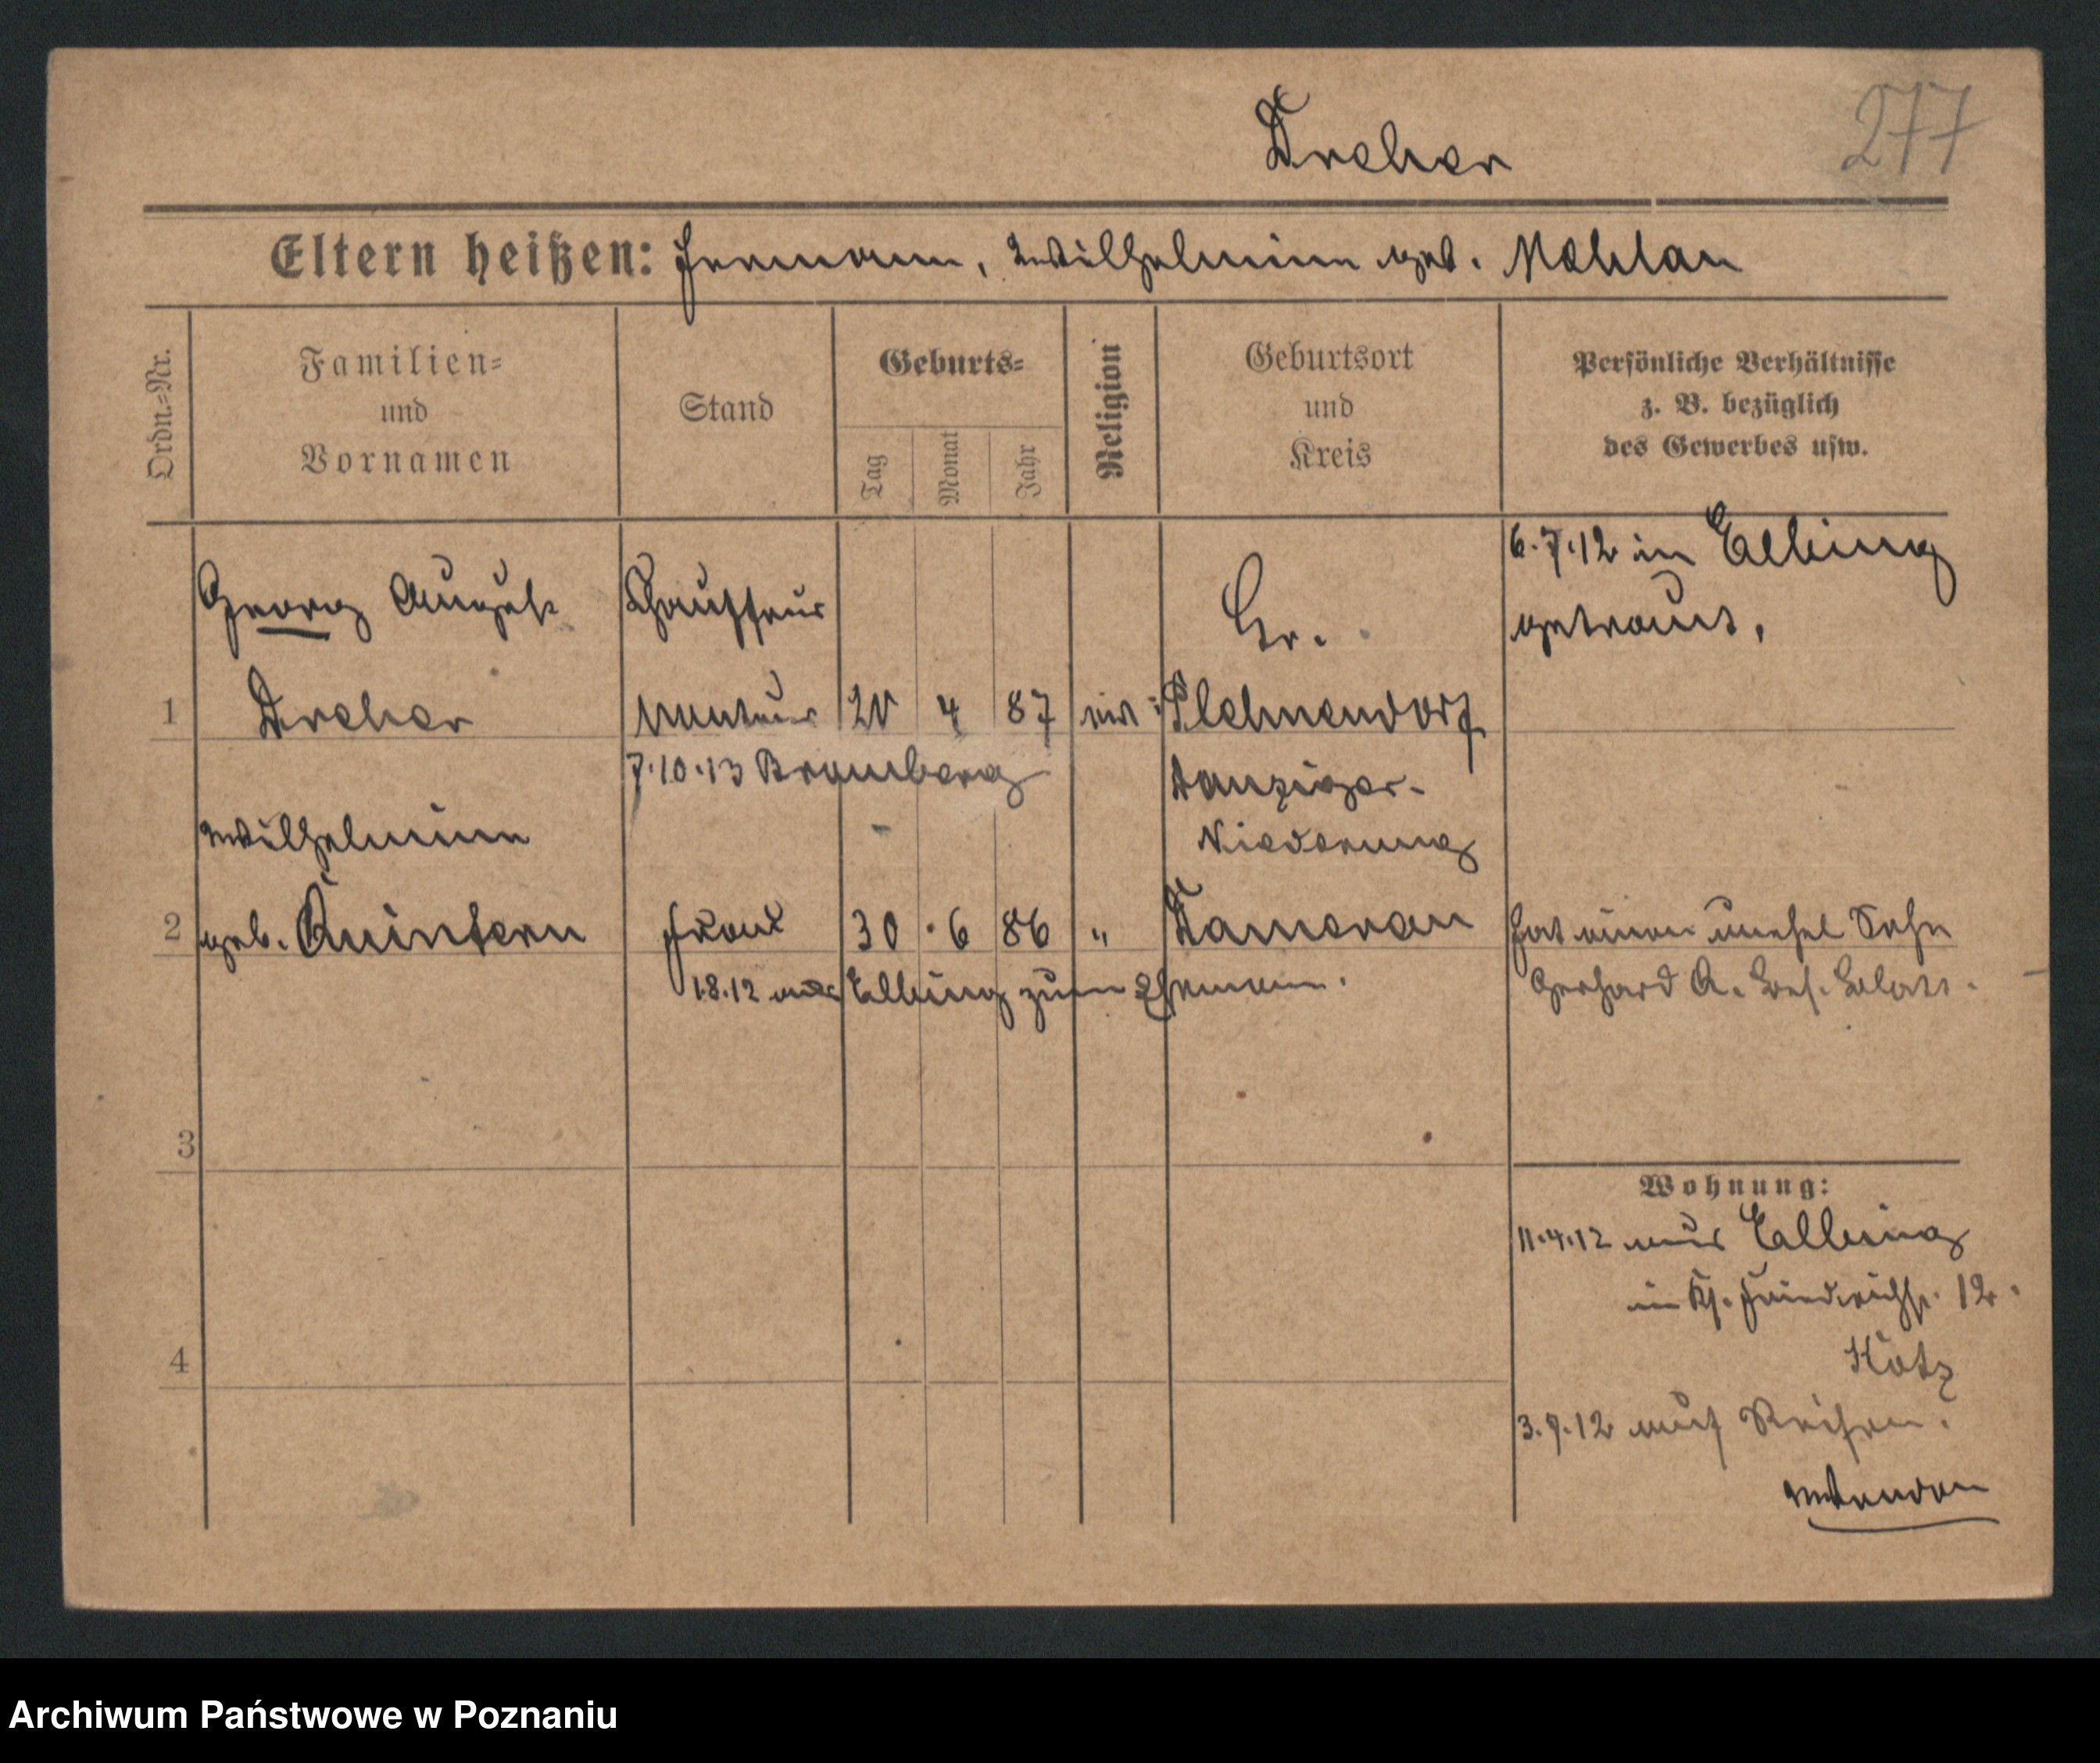 Dreher
277
Eltern heißen: Hermann, Wilhelmine geb. Mahlau
Ordn.-Nr.
Familien-
und
Vornamen
Stand
Geburts-
Tag
Monat
Jahr
Religion
Geburtsort
und
Kreis
Persönliche Verhältnisse
z. B. bezüglich
des Gewerbes usw.
6.7.12 in Elbing
getraut.
Georg August
Dreher
Chauffeur
Monteur
1
20 4 87
Gr.
Plehnendorf
7.10.13 Bromberg
Danziger-
Niederung
Wilhelmine
2
geb. Quintern
Frau
30. 6 86 "
Damerau
hat einen unehel Sohn
Gerhard Q. bes. Blatt.
1.8.12 aus Elbing zum Ehemann.
3
4
Wohnung:
11.4.12 aus Elbing
in Friedrichstr. 12.
Kotz
3.9.12 auf Reisen.
wenden
Archiwum Państwowe w Poznaniu